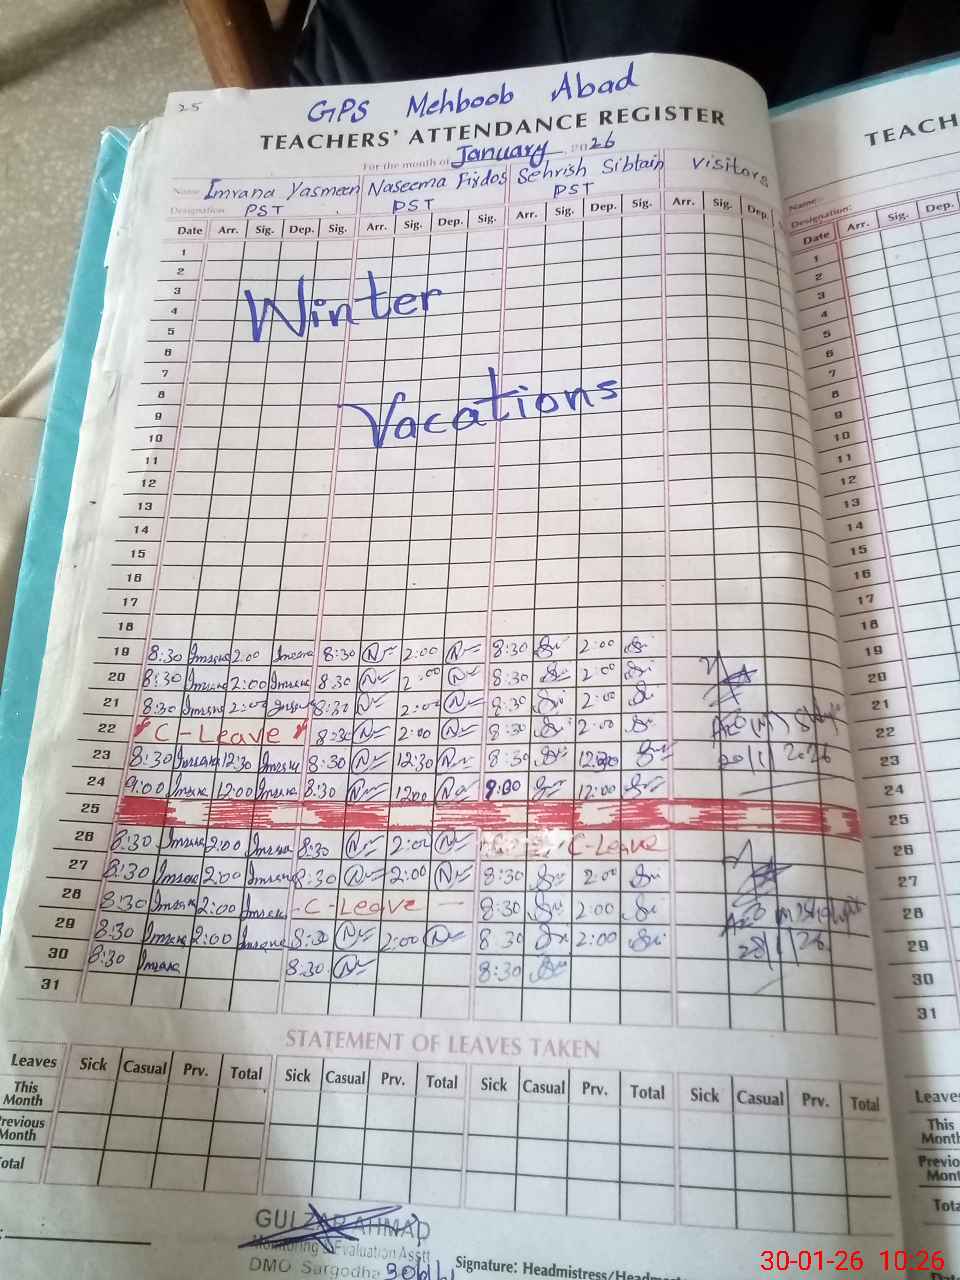 25
GPS Mehboob Abad
TEACHERS' ATTENDANCE REGISTER
For the month of January 2026
Name Imrana Yasmeen Naseema Firdos Sehrish Sibtain Visitors
Designation PST PST PST
Date Arr. Sig. Dep. Sig. Arr. Sig. Dep. Sig. Arr. Sig. Dep. Sig. Arr. Sig. Dep.
1
2
3
4
5
Winter
6
7
8
9
10
Vacations
11
12
13
14
15
16
17
18
19 8:30 Imrana 2:00 Imrana 8:30 2:00 8:30 2:00
20 8:30 Imrana 2:00 Imrana 8:30 2:00 8:30 2:00
21 8:30 Imrana 2:00 Imrana 8:30 2:00 8:30 2:00
22 C-Leave 8:30 2:00 8:30 2:00
23 8:30 Imrana 12:30 Imrana 8:30 12:30 8:30 12:30
20/1/2026
24 9:00 Imrana 12:00 Imrana 8:30 12:00 9:00 12:00
25
26 8:30 Imrana 2:00 Imrana 8:30 2:00 C-Leave
27 8:30 Imrana 2:00 Imrana 8:30 2:00 8:30 2:00
28 8:30 Imrana 2:00 Imrana - C-Leave - 8:30 2:00
29 8:30 Imrana 2:00 Imrana 8:30 2:00 8:30 2:00
28/1/26
30 8:30 Imrana 8:30 8:30
31
STATEMENT OF LEAVES TAKEN
Leaves Sick Casual Prv. Total Sick Casual Prv. Total Sick Casual Prv. Total Sick Casual Prv. Total
This Month
Previous Month
Total
GULZAR AHMAD
Monitoring & Evaluation Asstt
DMO Sargodha
Signature: Headmistress/
TEACH
Name:
Designation:
Date Arr. Sig. Dep.
1
2
3
4
5
6
7
8
9
10
11
12
13
14
15
16
17
18
19
20
21
22
23
24
25
26
27
28
29
30
31
Leaves
This
Month
Total
30-01-26 10:26